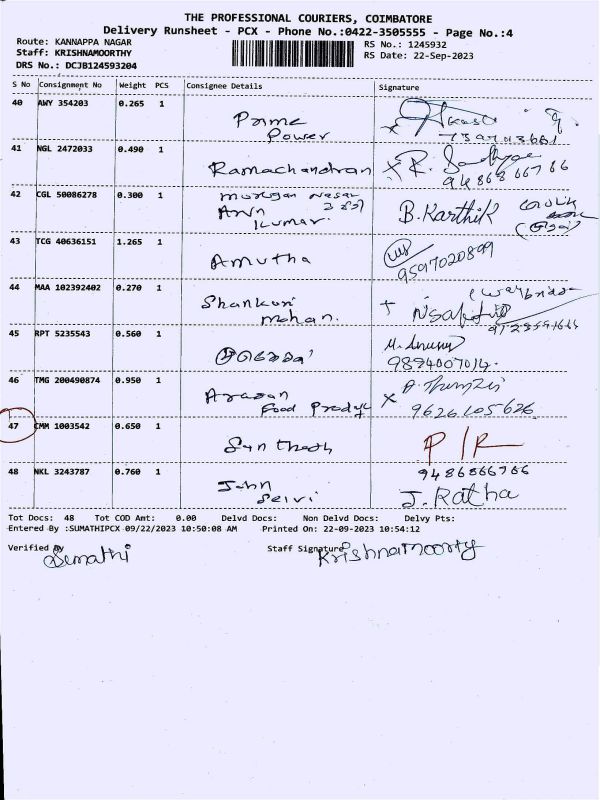 THE PROFESSIONAL COURIERS, COIMBATORE
Delivery Runsheet - PCX - Phone No.:0422-3505555 - Page No.:4
Route: KANNAPPA NAGAR
Staff: KRISHNAMOORTHY
DRS No.: DCJB124593204
RS No.: 1245932
RS Date: 22-Sep-2023
S No Consignment No Weight PCS Consignee Details Signature
40 AWY 354203 0.265 1
Prime
Power
41 NGL 2472033 0.490 1
Ramachandran
R.
94868 66766
42 CGL 50086278 0.300 1
Murugan Nagar
Arun
Kumar.
B. Karthik
43 TCG 40636151 1.265 1
Amutha
9597020899
44 MAA 102392402 0.270 1
Shankari
mohan.
45 RPT 5235543 0.560 1
9894007014.
46 TMG 200490874 0.950 1
Arasan
Food Product
9626105626
47 CMM 1003542 0.650 1
Santhosh
P/R
48 NKL 3243787 0.760 1
John
Selvi
9486866766
J. Ratha
Tot Docs: 48 Tot COD Amt: 0.00 Delvd Docs: Non Delvd Docs: Delvy Pts:
Entered By :SUMATHIPCX 09/22/2023 10:50:08 AM Printed On: 22-09-2023 10:54:12
Verified By
Sumathi
Staff Signature
Krishnamoorty